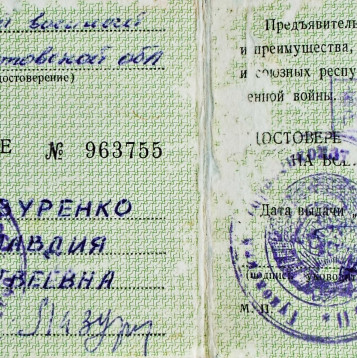 военный
товской обл
достоверение)
Е № 963755
ЗУРЕНКО
ЛАВДИЯ
ВЕЕВНА
Мазур
Предъявитель
и преимущества,
и союзных респу
енной войны.
ДОСТОВЕРЕ
НА ВСЕ
Дата выдачи
(подпись руковод
М. П.